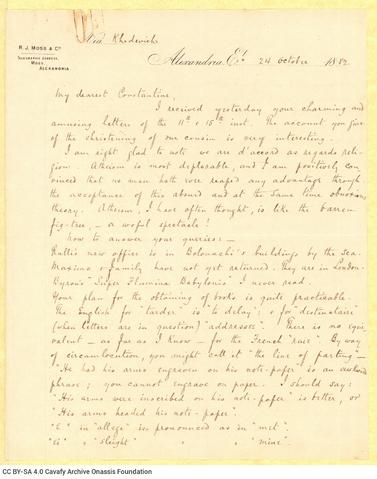 Via Khedevieh
R. J. MOSS & Co.
TELEGRAPHIC ADDRESS,
MOSS,
ALEXANDRIA.
Alexandria, Et. 24 October 1882
My dearest Constantine,
I received yesterday your charming and
amusing letters of the 11th & 15th inst. The account you give
of the christening of our cousin is very interesting.
I am right glad to note we are d'accord as regards reli-
gion. Atheism is most deplorable, and I am positively con
vinced that no man hath ever reaped any advantage through
the acceptance of this absurd and at the same time obnoxious
theory. Atheism, I have often thought, is like the barren
fig-tree, — a woful spectacle!
Now to answer your queries: —
Rallis new office is in Bolonachi's buildings by the sea.
Maximo & family have not yet returned. They are in London.
Byron's "Super Flumina Babylonis" I never read.
Your plan for the obtaining of books is quite practicable.
The English for "tarder" is "to delay"; & for "destinataire"
(when letters are in question) "addressee". There is no equi
valent — as far as I know — for the French "raie". By way
of circumlocution, you might call it "the line of parting" —
"He had his arms engraven on his note-paper" is an awkward
phrase; you cannot engrave on paper. I should say:
"His arms were inscribed on his note-paper" is better, or
"His arms headed his note-paper".
"E" in "allege" is pronounced as in "met".
"Ei" " "sleight" " " " "mine".
CC BY-SA 4.0 Cavafy Archive Onassis Foundation